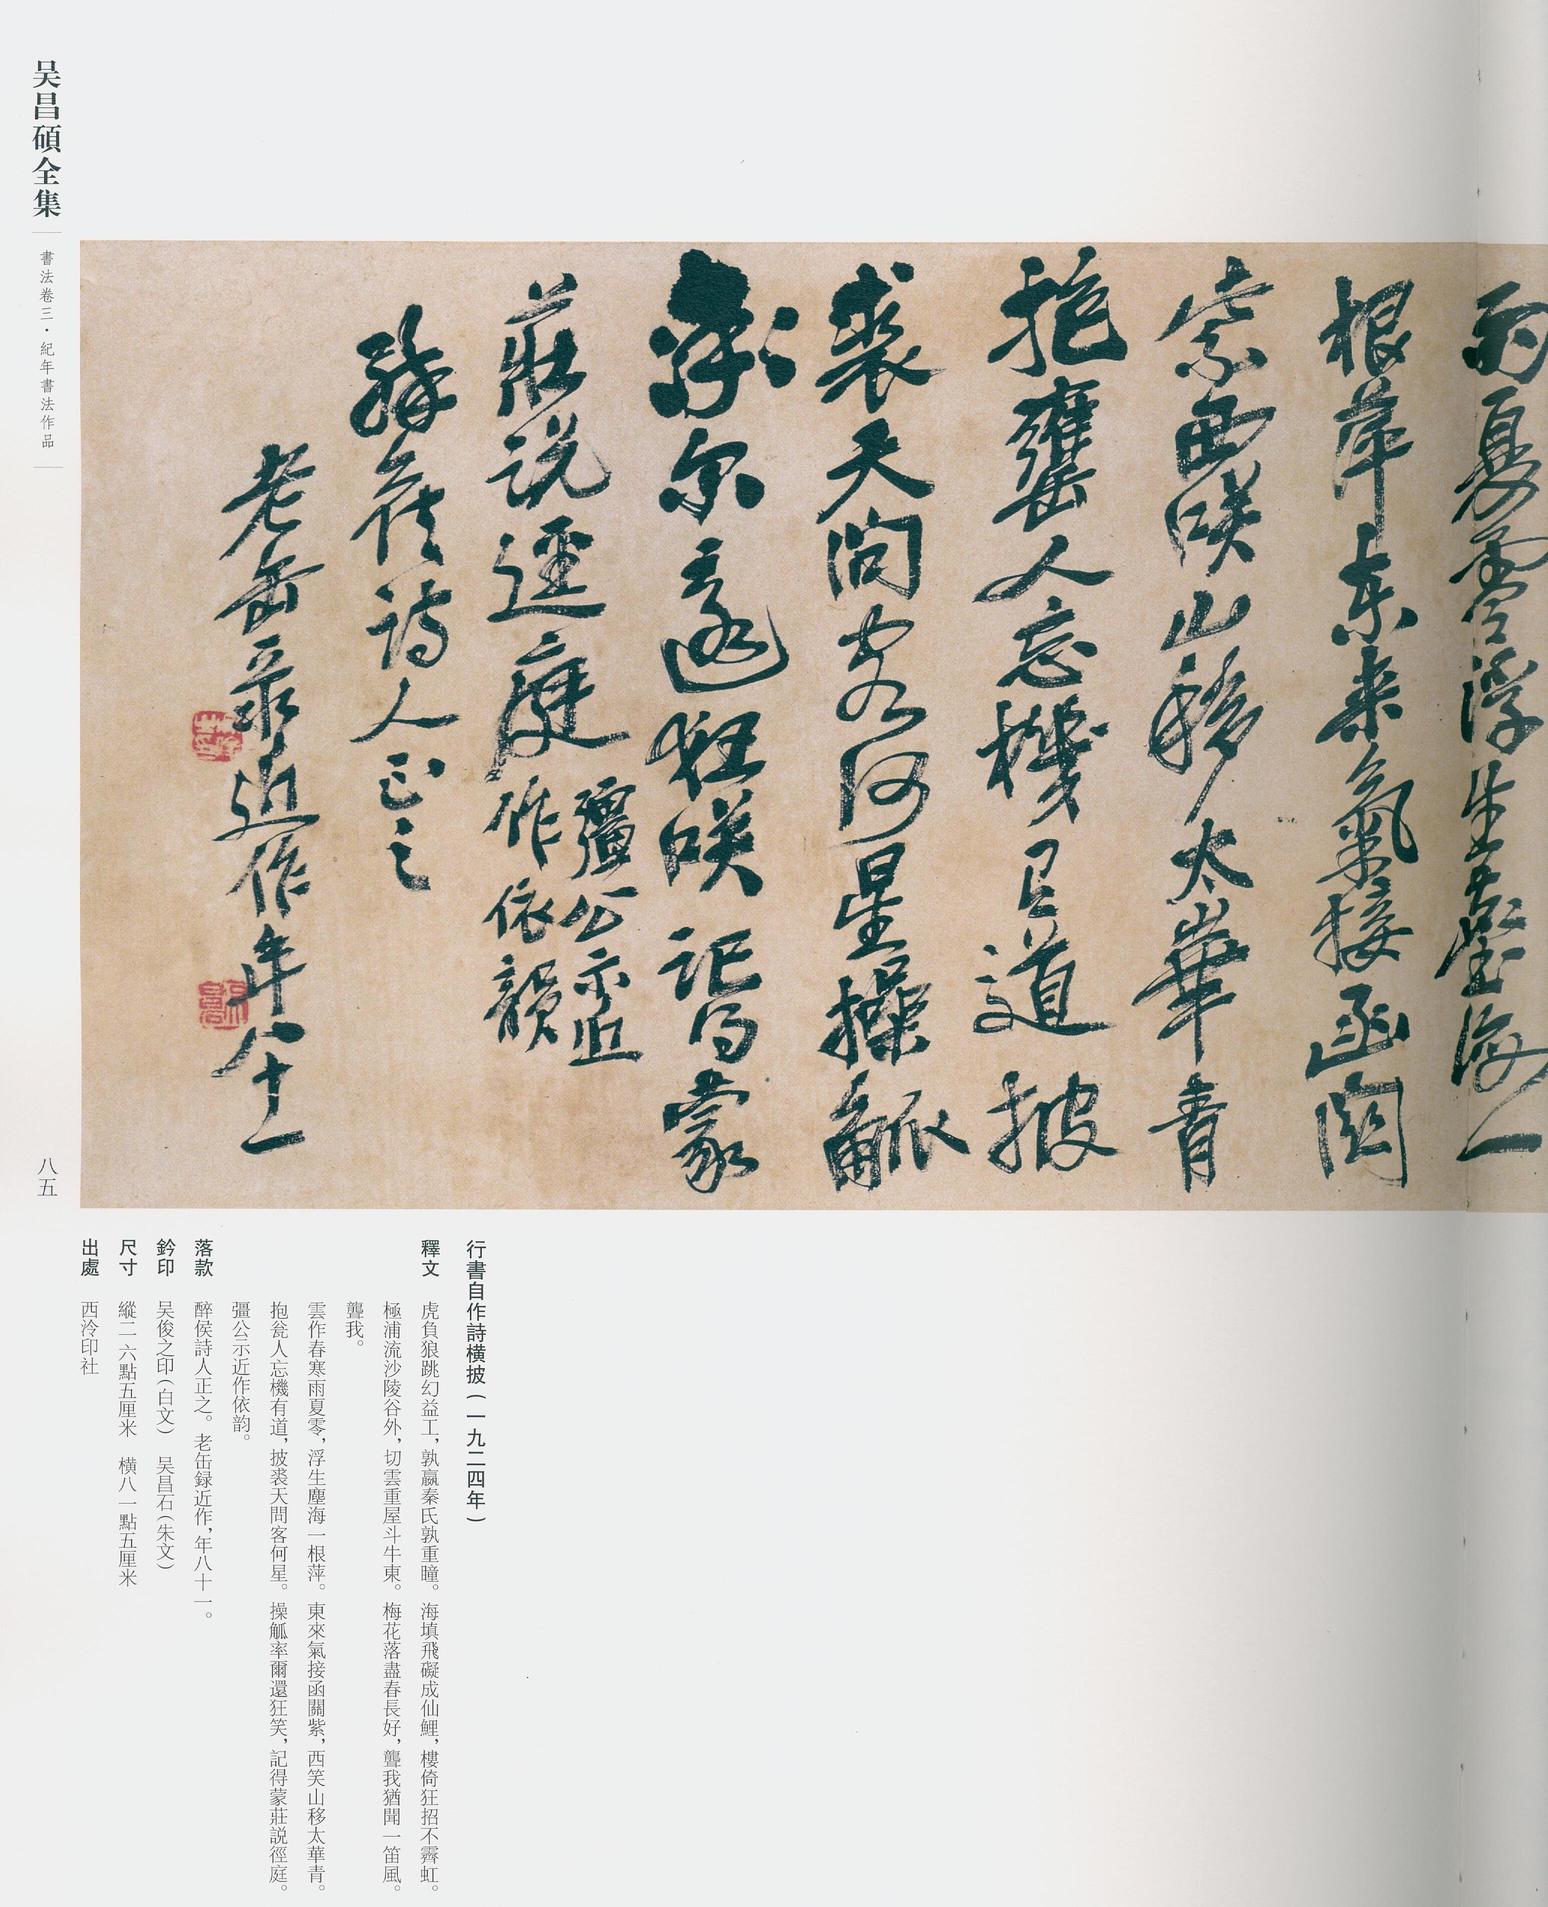 雨夏零浮生塵海一
根萍東来氣接函関
紫西咲山移太華青
抱甕人忘機有道披
裘天問客何星操觚
率尔還狂咲記得蒙
莊説逕庭
彊公示近
作依韻
醉侯詩人正之
老缶录近作年八十一
吴昌碩全集
書法卷三·紀年書法作品
八五
行書自作詩橫披（一九二四年）
釋文 虎負狼跳幻益工，孰嬴秦氏孰重瞳。海填飛礙成仙鯉，樓倚狂招不霽虹。
極浦流沙陵谷外，切雲重屋斗牛東。梅花落盡春長好，聾我猶聞一笛風。
聾我。
雲作春寒雨夏零，浮生塵海一根萍。東來氣接函關紫，西笑山移太華青。
抱瓮人忘機有道，披裘天問客何星。操觚率爾還狂笑，記得蒙莊説徑庭。
彊公示近作依韵。
落款 醉侯詩人正之。老缶録近作，年八十一。
鈐印 吴俊之印（白文） 吴昌石（朱文）
尺寸 縱二六點五厘米 橫八一點五厘米
出處 西泠印社